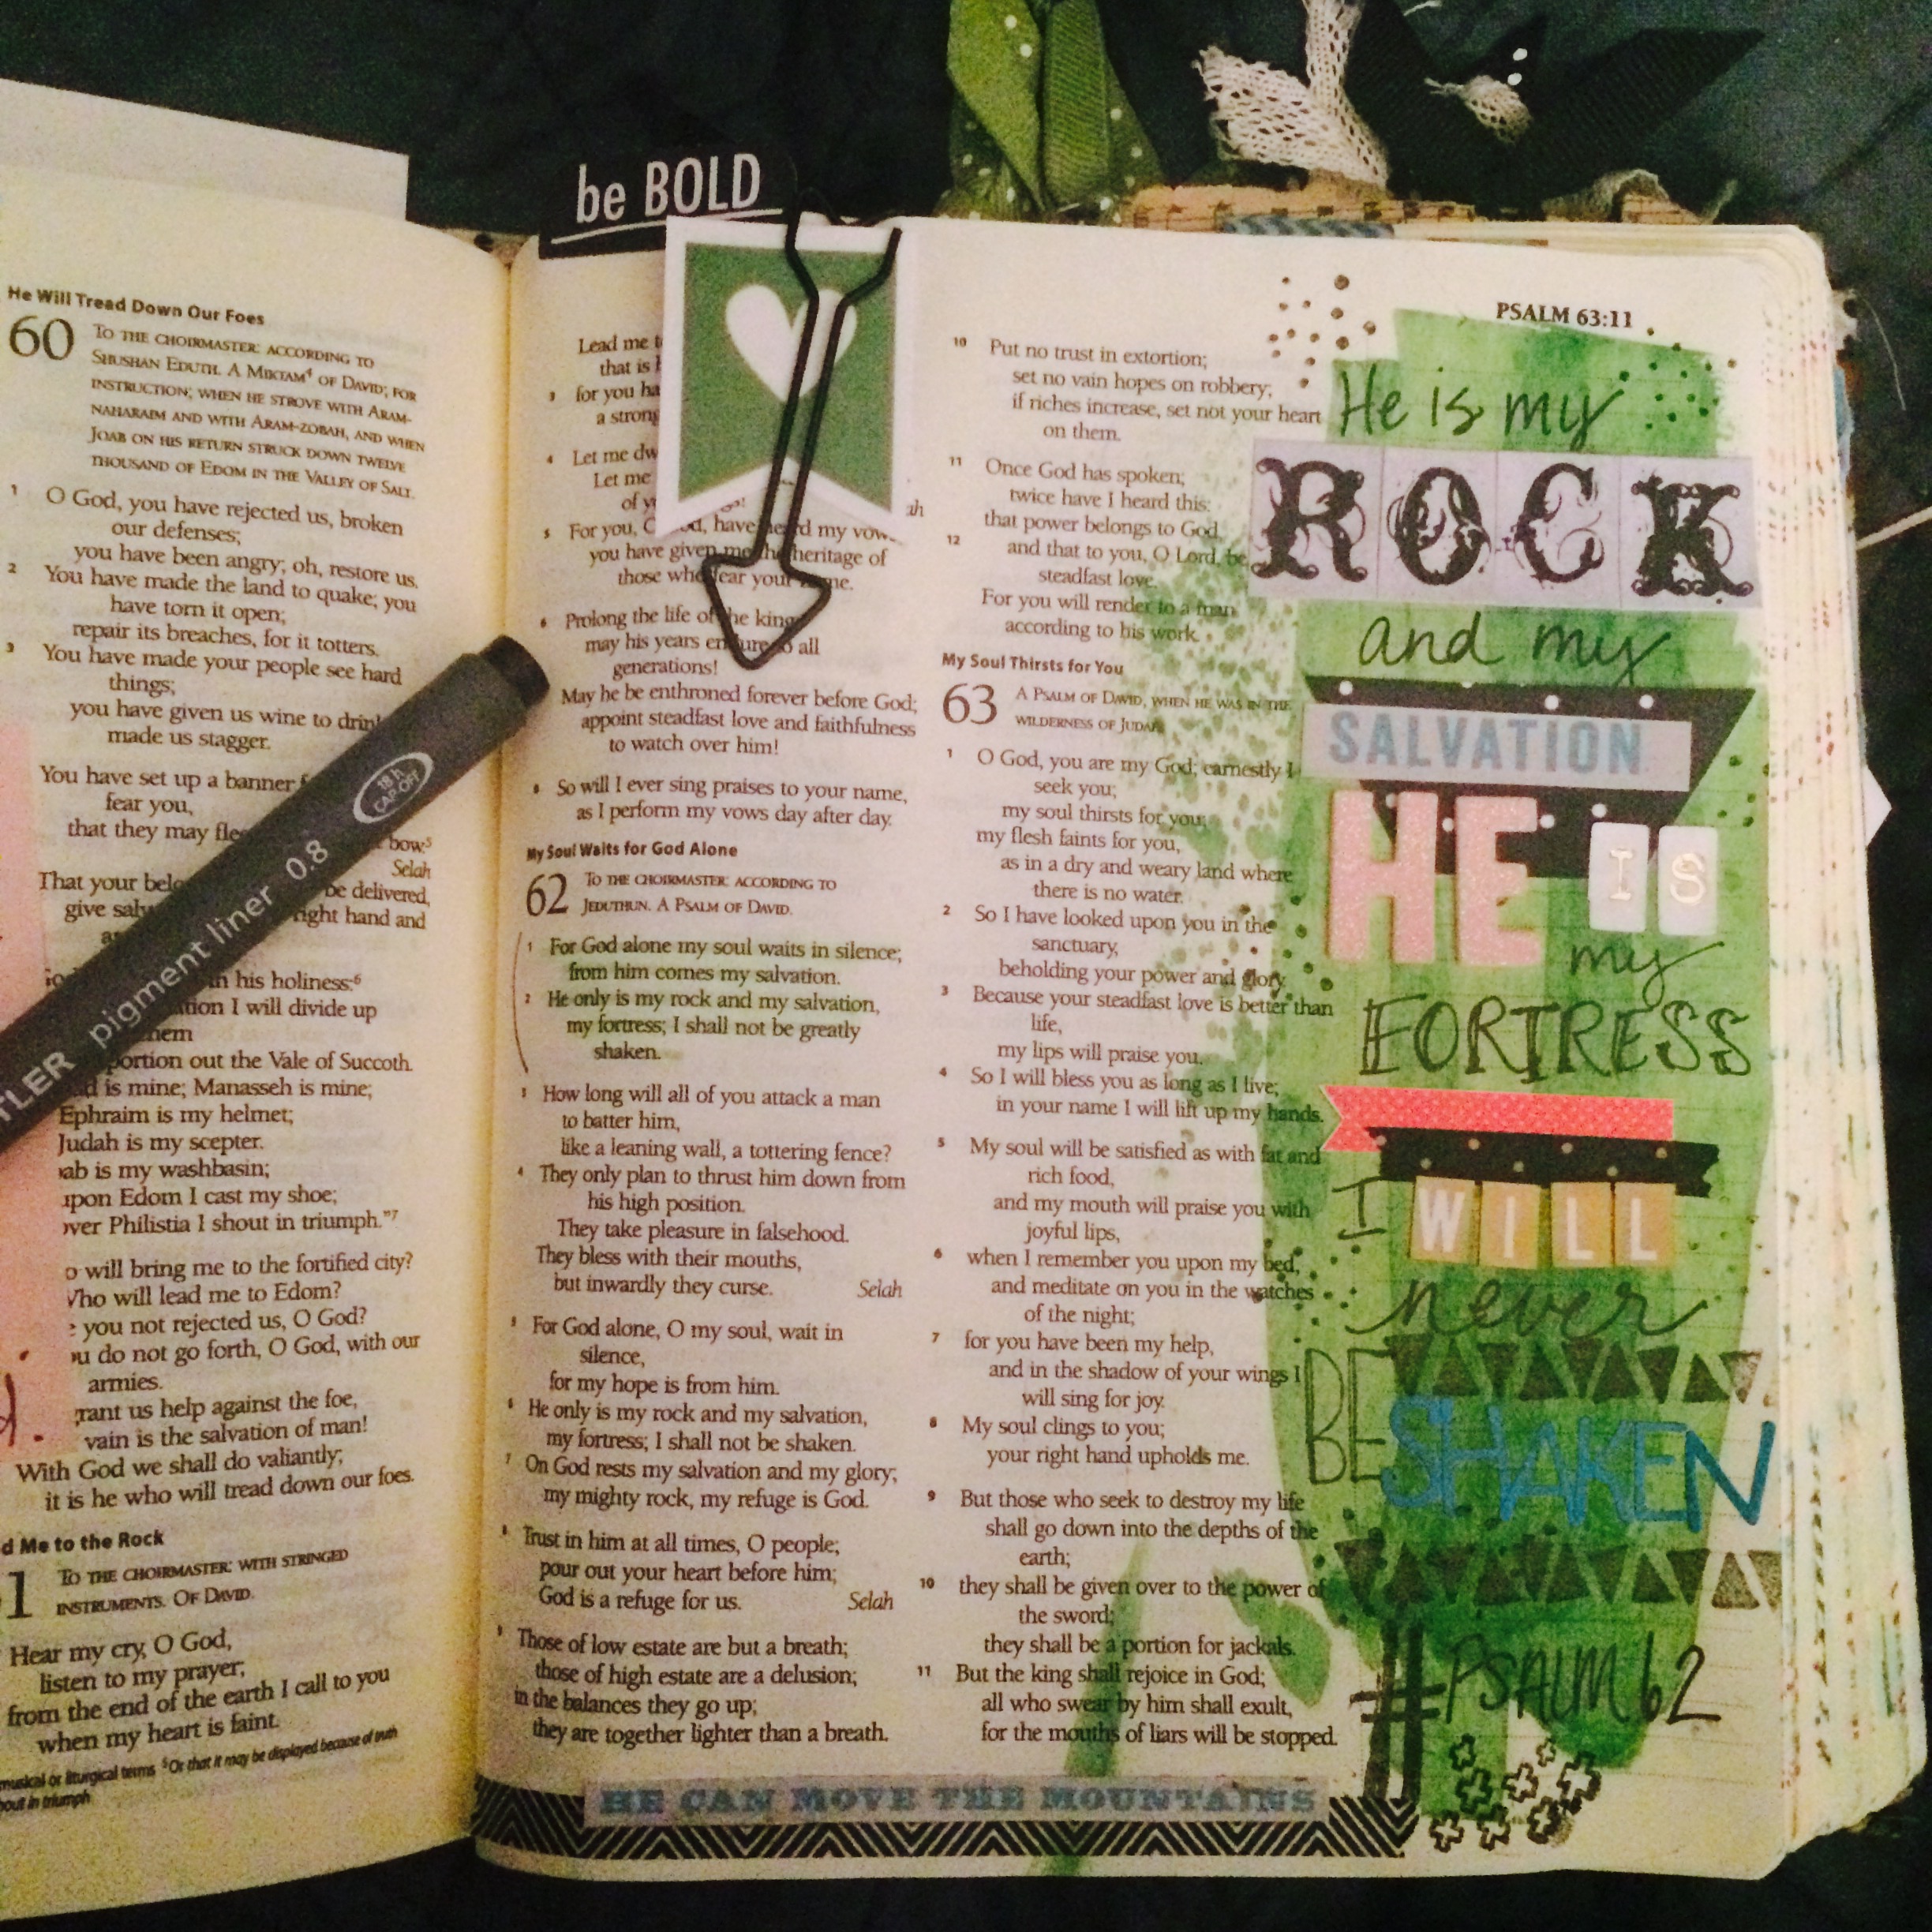 be BOLD
He Will Tread Down Our Foes
60 TO THE CHOIRMASTER: ACCORDING TO
SHUSHAN EDUTH. A MIKTAM4 OF DAVID; FOR
INSTRUCTION; WHEN HE STROVE WITH ARAM-
NAHARAIM AND WITH ARAM-ZOBAH, AND WHEN
JOAB ON HIS RETURN STRUCK DOWN TWELVE
THOUSAND OF EDOM IN THE VALLEY OF SALT.
1 O God, you have rejected us, broken
our defenses;
you have been angry; oh, restore us.
2 You have made the land to quake; you
have torn it open;
repair its breaches, for it totters.
3 You have made your people see hard
things;
you have given us wine to drink
made us stagger.
You have set up a banner
fear you,
that they may flee bow.5
Selah
That your be delivered,
give right hand and
in his holiness:6
I will divide up
portion out the Vale of Succoth.
is mine; Manasseh is mine;
Ephraim is my helmet;
Judah is my scepter.
is my washbasin;
upon Edom I cast my shoe;
over Philistia I shout in triumph."7
will bring me to the fortified city?
Who will lead me to Edom?
you not rejected us, O God?
do not go forth, O God, with our
armies.
grant us help against the foe,
vain is the salvation of man!
With God we shall do valiantly;
it is he who will tread down our foes.
Me to the Rock
1 TO THE CHOIRMASTER: WITH STRINGED
INSTRUMENTS. OF DAVID.
Hear my cry, O God,
listen to my prayer;
from the end of the earth I call to you
when my heart is faint.
musical or liturgical terms 5Or that it may be displayed because of truth
in triumph
pigment liner 0.8 18 h CAP-OFF
Lead me
that is
3 for you
a strong
4 Let me
Let me
of
5 For you, have my
you have given me the heritage of
those who fear your name.
6 Prolong the life of the king
may his years endure to all
generations!
May he be enthroned forever before God;
appoint steadfast love and faithfulness
to watch over him!
8 So will I ever sing praises to your name,
as I perform my vows day after day.
My Soul Waits for God Alone
62 TO THE CHOIRMASTER: ACCORDING TO
JEDUTHUN. A PSALM OF DAVID.
1 For God alone my soul waits in silence;
from him comes my salvation.
2 He only is my rock and my salvation,
my fortress; I shall not be greatly
shaken.
3 How long will all of you attack a man
to batter him,
like a leaning wall, a tottering fence?
4 They only plan to thrust him down from
his high position.
They take pleasure in falsehood.
They bless with their mouths,
but inwardly they curse. Selah
5 For God alone, O my soul, wait in
silence,
for my hope is from him.
6 He only is my rock and my salvation,
my fortress; I shall not be shaken.
7 On God rests my salvation and my glory;
my mighty rock, my refuge is God.
8 Trust in him at all times, O people;
pour out your heart before him;
God is a refuge for us. Selah
9 Those of low estate are but a breath;
those of high estate are a delusion;
in the balances they go up;
they are together lighter than a breath.
10 Put no trust in extortion;
set no vain hopes on robbery;
if riches increase, set not your heart
on them.
11 Once God has spoken;
twice have I heard this:
that power belongs to God,
12 and that to you, O Lord, be
steadfast love.
For you will render to a man
according to his work.
My Soul Thirsts for You
63 A PSALM OF DAVID, WHEN HE WAS IN THE
WILDERNESS OF JUDAH.
1 O God, you are my God; earnestly I
seek you;
my soul thirsts for you;
my flesh faints for you,
as in a dry and weary land where
there is no water.
2 So I have looked upon you in the
sanctuary,
beholding your power and glory.
3 Because your steadfast love is better than
life,
my lips will praise you.
4 So I will bless you as long as I live;
in your name I will lift up my hands.
5 My soul will be satisfied as with fat and
rich food,
and my mouth will praise you with
joyful lips,
6 when I remember you upon my bed,
and meditate on you in the watches
of the night;
7 for you have been my help,
and in the shadow of your wings I
will sing for joy.
8 My soul clings to you;
your right hand upholds me.
9 But those who seek to destroy my life
shall go down into the depths of the
earth;
10 they shall be given over to the power of
the sword;
they shall be a portion for jackals.
11 But the king shall rejoice in God;
all who swear by him shall exult,
for the mouths of liars will be stopped.
PSALM 63:11
He is my
ROCK
and my
SALVATION
HE IS
my
FORTRESS
I WILL
never
BE SHAKEN
#PSALM62
HE CAN MOVE THE MOUNTAINS